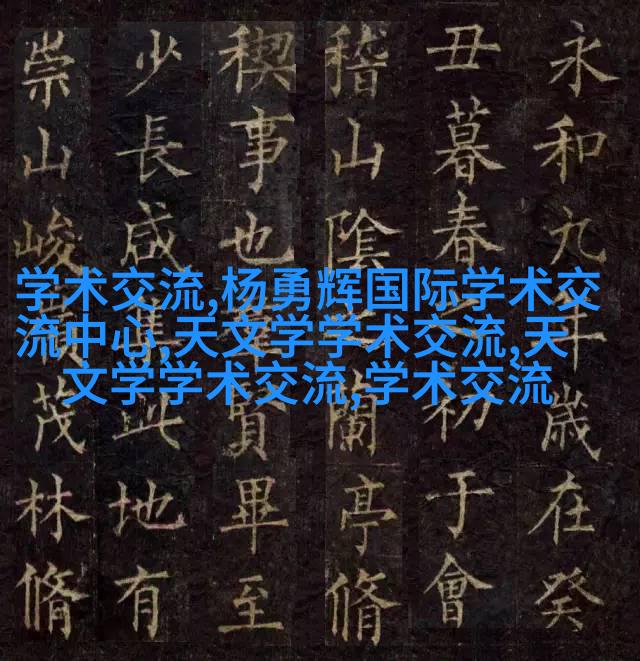 永和九年歲在癸
丑暮春之初于會
稽山陰蘭亭脩
稧事也賢畢至
少長咸集此地有
崇山峻茂林脩
学术交流,杨勇辉国际学术交
流中心,天文学学术交流,天
文学学术交流,学术交流